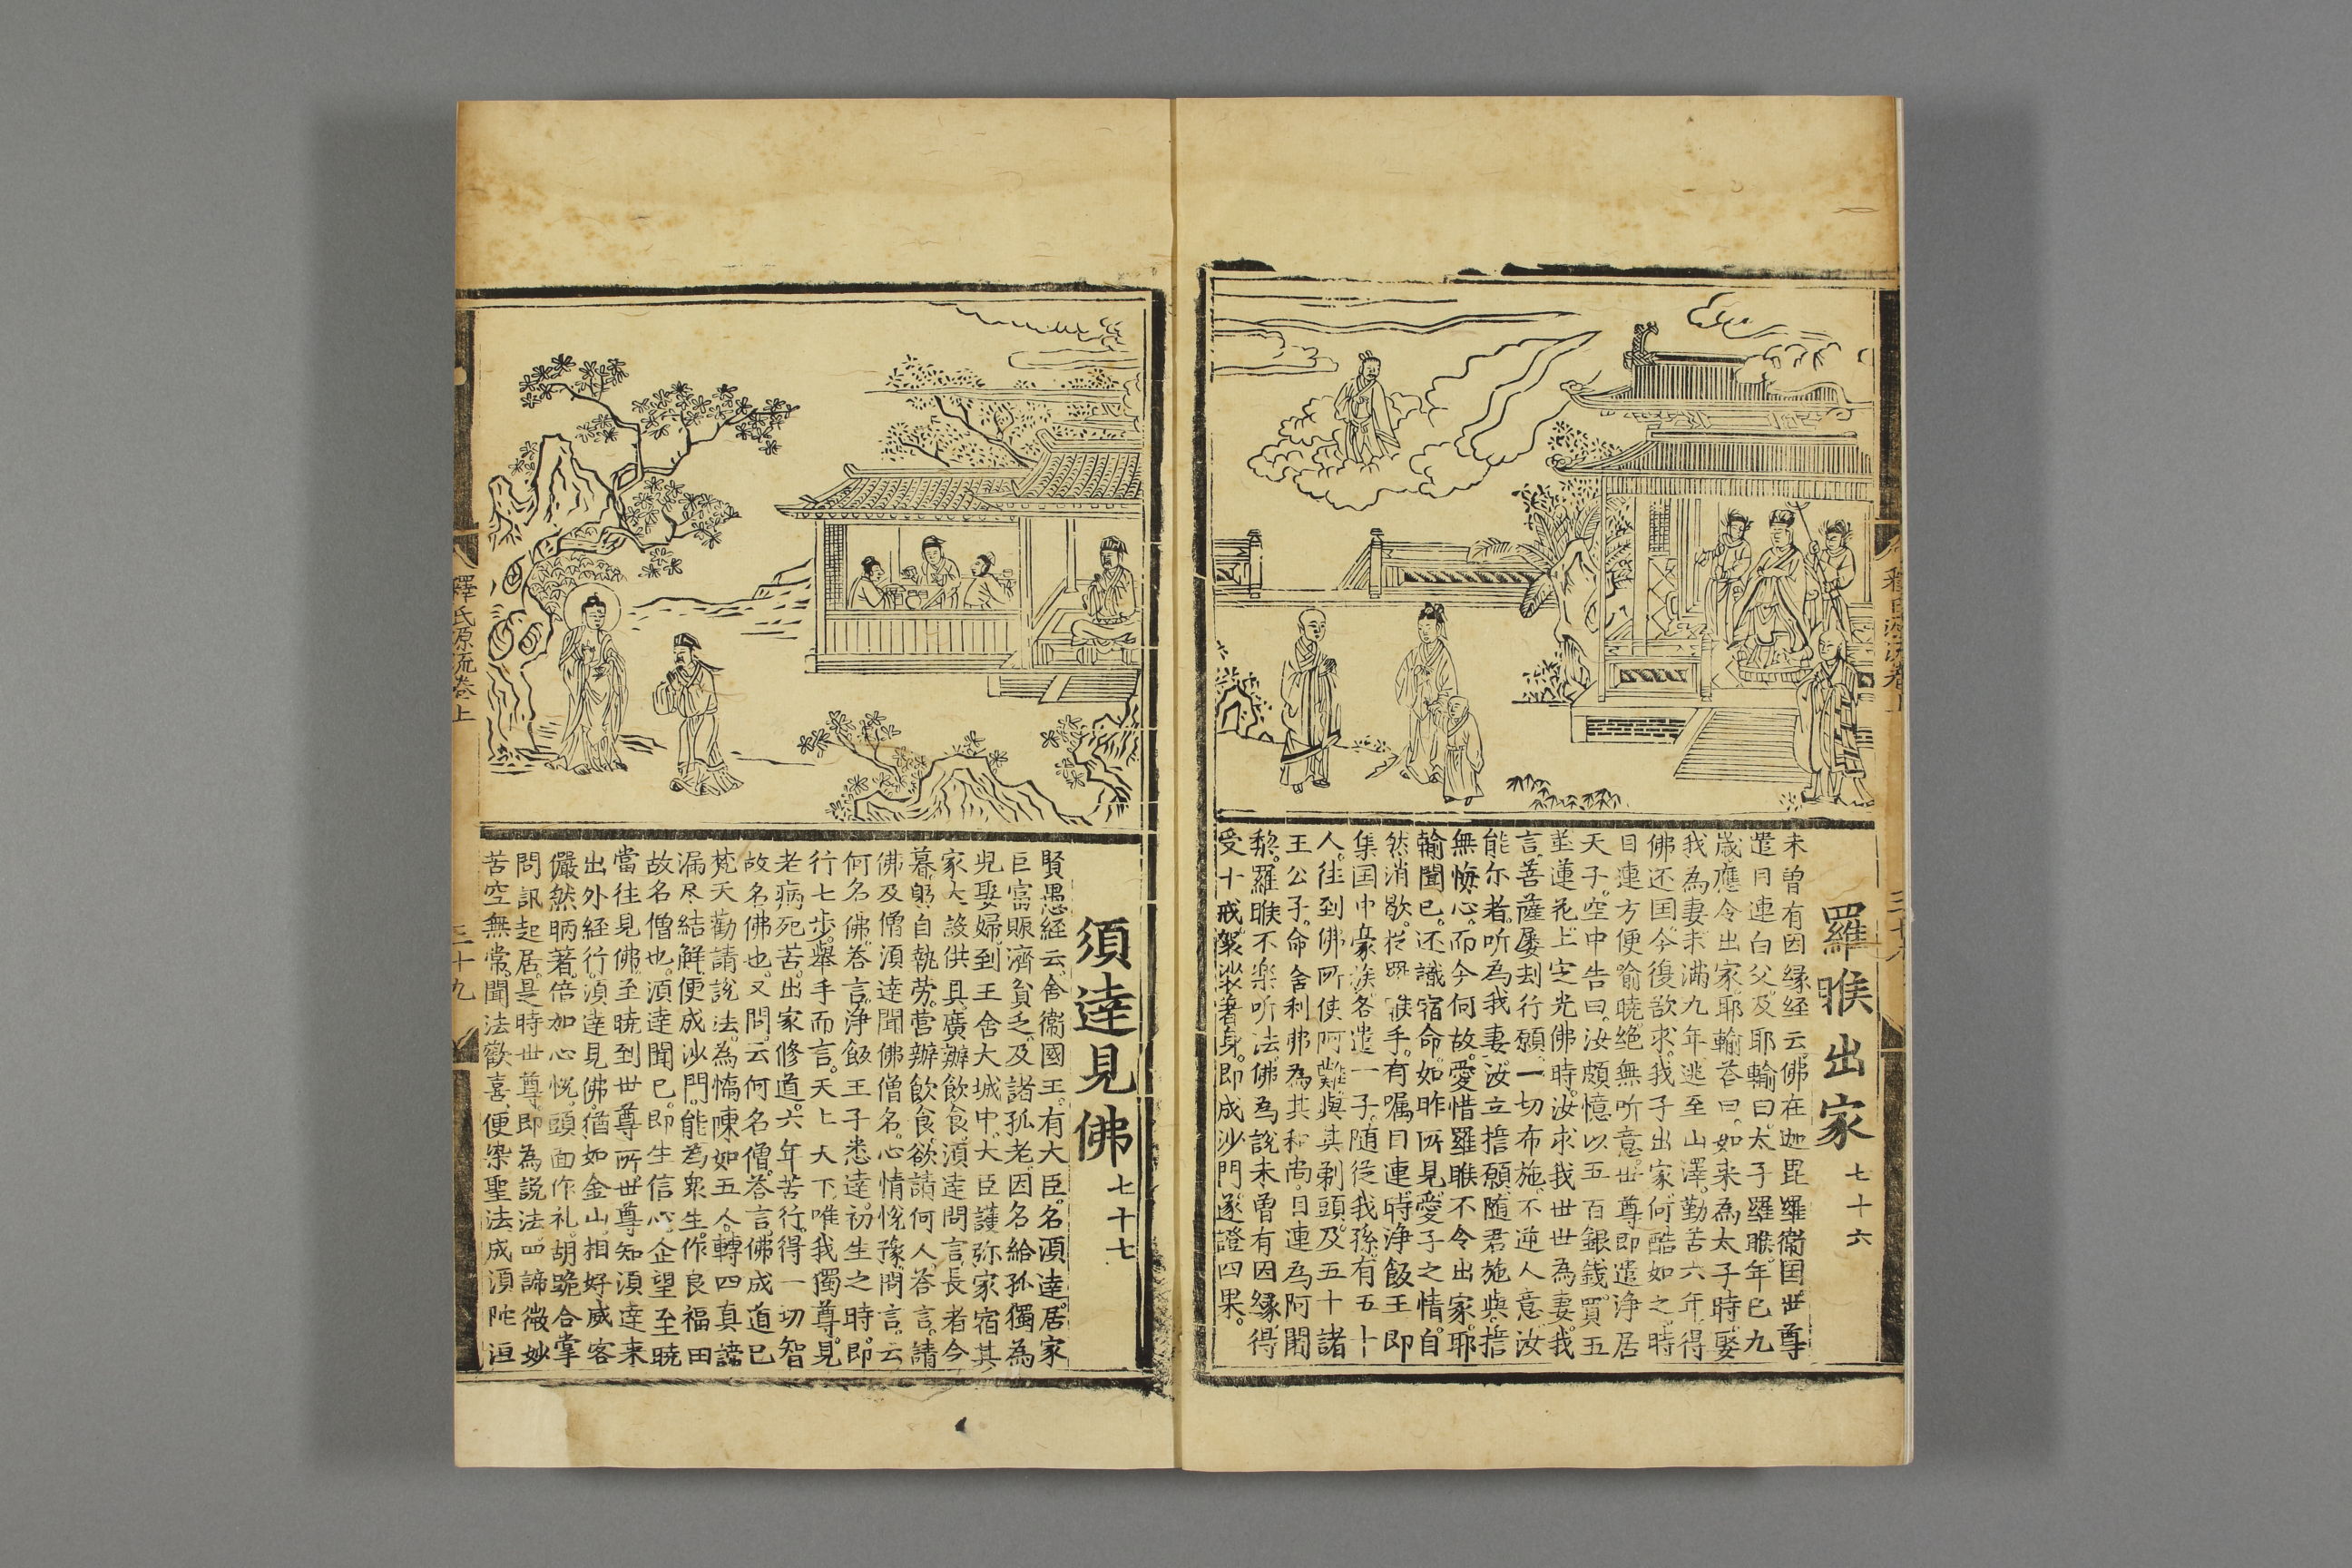 羅睺出家 七十六
未曾有因緣経云。佛在迦毘羅衞国。世尊
遣目連白父。及耶輸曰。太子羅睺。年已九
歲。應令出家。耶輸荅曰。如来為太子時。娶
我為妻。未満九年。逃至山澤。勤苦六年。得
佛还国。今復欲求。我子出家。何酷如之。時
目連方便喻曉。絶無听意。世尊即遣淨居
天子。空中告曰。汝頗憶以五百銀錢。買五
莖蓮花。上㝎光佛時。汝求我世世為妻。我
言。菩薩屡刦行願。一切布施。不逆人意。汝
能尓者。听為我妻。汝立誓願。随君施與。誓
無悔心。而今何故。愛惜羅睺。不令出家。耶
輸聞已。还識宿命。如昨所見。愛子之情。自
然消歇。捉羅睺手。有嘱目連。時淨飯王即
集国中豪族。各遣一子。随従我孫。有五十
人。往到佛所。使阿難與其剃頭。及五十諸
王公子。命舍利弗為其和尚。目連為阿闍
黎。羅睺不楽听法。佛為說未曽有因緣。得
受十戒。袈裟著身。即成沙門。遂證四果。
須達見佛 七十七
賢愚経云。舍衞國王。有大臣。名須達。居家
巨富。賑濟貧乏。及諸孤老。因名給孤獨。為
兒娶婦。到王舍大城中。大臣護弥家宿。其
家大設供具。廣辦飲食。須達問言。長者今
暮。躬自執劳。营辦飲食。欲請何人。荅言。請
佛及僧。須達聞佛僧名。心情悅豫。問言。云
何名佛。荅言。淨飯王子悉達。初生之時。即
行七歩。舉手而言。天上天下。唯我獨尊。見
老病死苦。出家修道。六年苦行。得一切智。
故名佛也。又問。云何名僧。荅言。佛成道已。
梵天勸請說法。為憍陳如五人。轉四真諦。
漏尽結解。便成沙門。能為衆生。作良福田。
故名僧也。須達聞已。即生信心。企望至曉。
當往見佛。至曉到世尊所。世尊知須達来。
出外経行。須達見佛。猶如金山。相好威容。
儼然昞著。倍加心悅。頭面作礼。胡跪合掌。
問訊起居。是時世尊。即為說法。四諦微妙。
苦空無常。聞法歡喜。便染聖法。成須陀洹
釋氏源流卷上
三十九